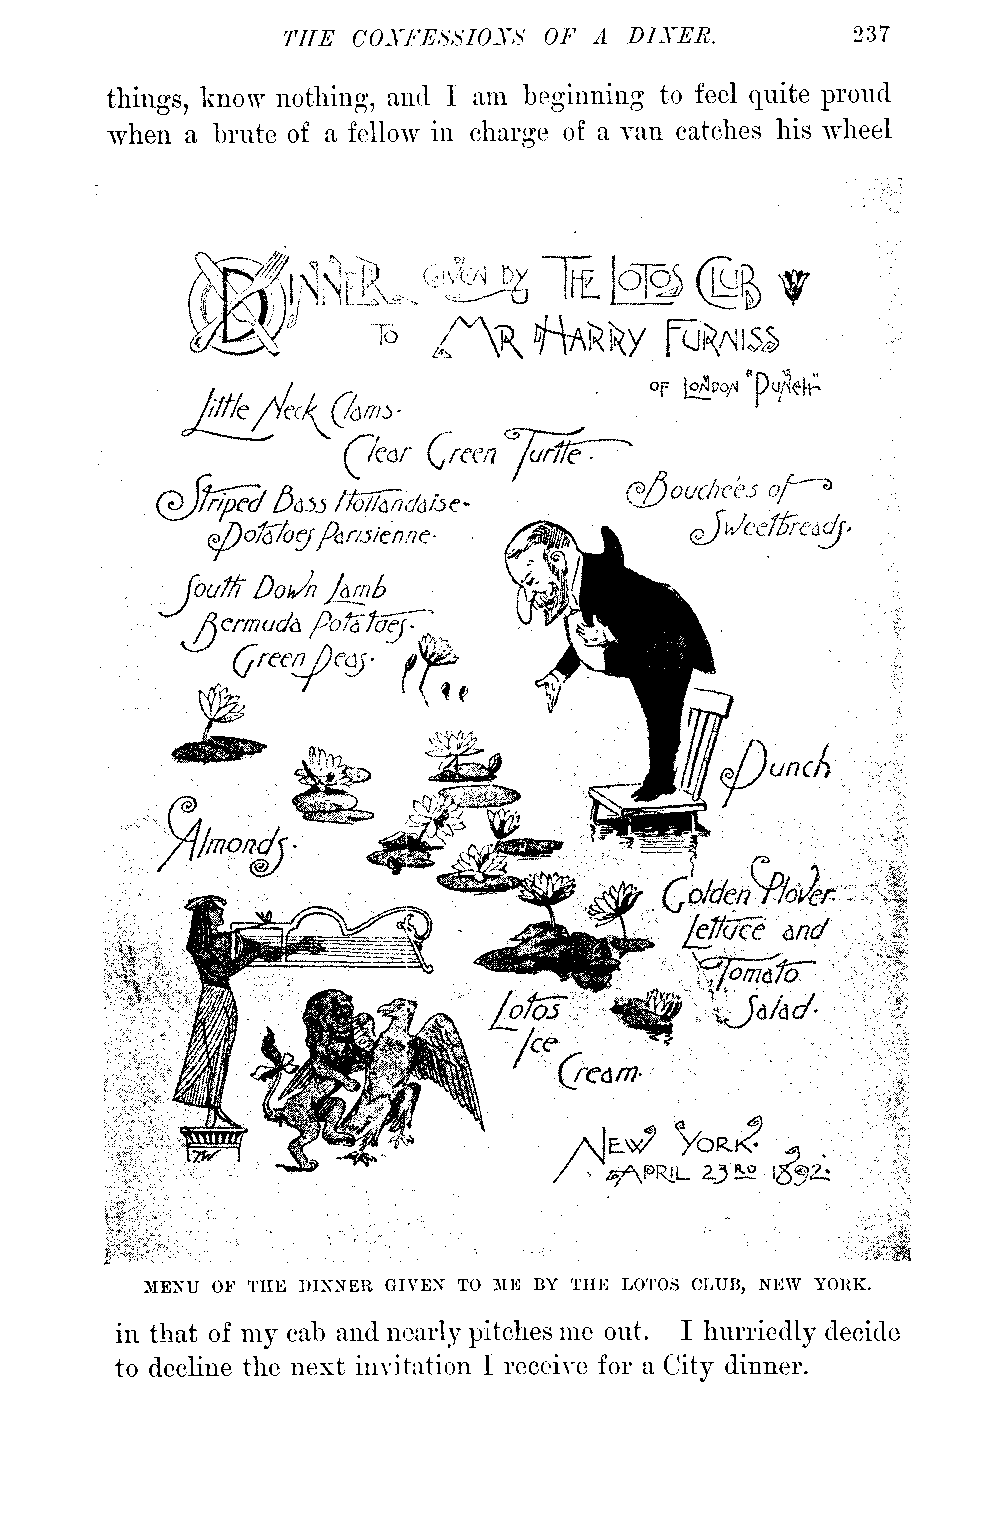 THE CONFESSIONS OF A DINER. 237
things, know nothing, and I am beginning to feel quite proud
when a brute of a fellow in charge of a van catches his wheel
DINNER GIVEN BY THE LOTOS CLUB
TO MR HARRY FURNISS
OF LONDON "PUNCH"
Little Neck Clams.
Clear Green Turtle.
Striped Bass Hollandaise.
Potatoes Parisienne.
Bouchées of
Sweetbreads.
South Down Lamb
Bermuda Potatoes.
Green Peas.
Punch
Almonds.
Golden Plover.
Lettuce and
Tomato
Salad.
Lotos
Ice
Cream.
NEW YORK.
APRIL 23RD 1892.
MENU OF THE DINNER GIVEN TO ME BY THE LOTOS CLUB, NEW YORK.
in that of my cab and nearly pitches me out. I hurriedly decide
to decline the next invitation I receive for a City dinner.